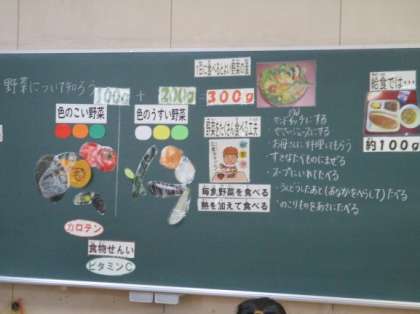 野菜について知ろう
100g + 200g = 300g
1日に食べるとよい野菜の量
色のこい野菜
色のうすい野菜
カロテン
食物せんい
ビタミンC
野菜をたくさん食べる工夫
毎食野菜を食べる
熱を加えて食べる
・サンドイッチにする
・お母さんに料理してもらう
・すきなたべものにまぜる
・スープにいれてたべる
・うんどうしたあと(おなかをへらして)たべる
・のこりものをあさにたべる
給食では…
約100g